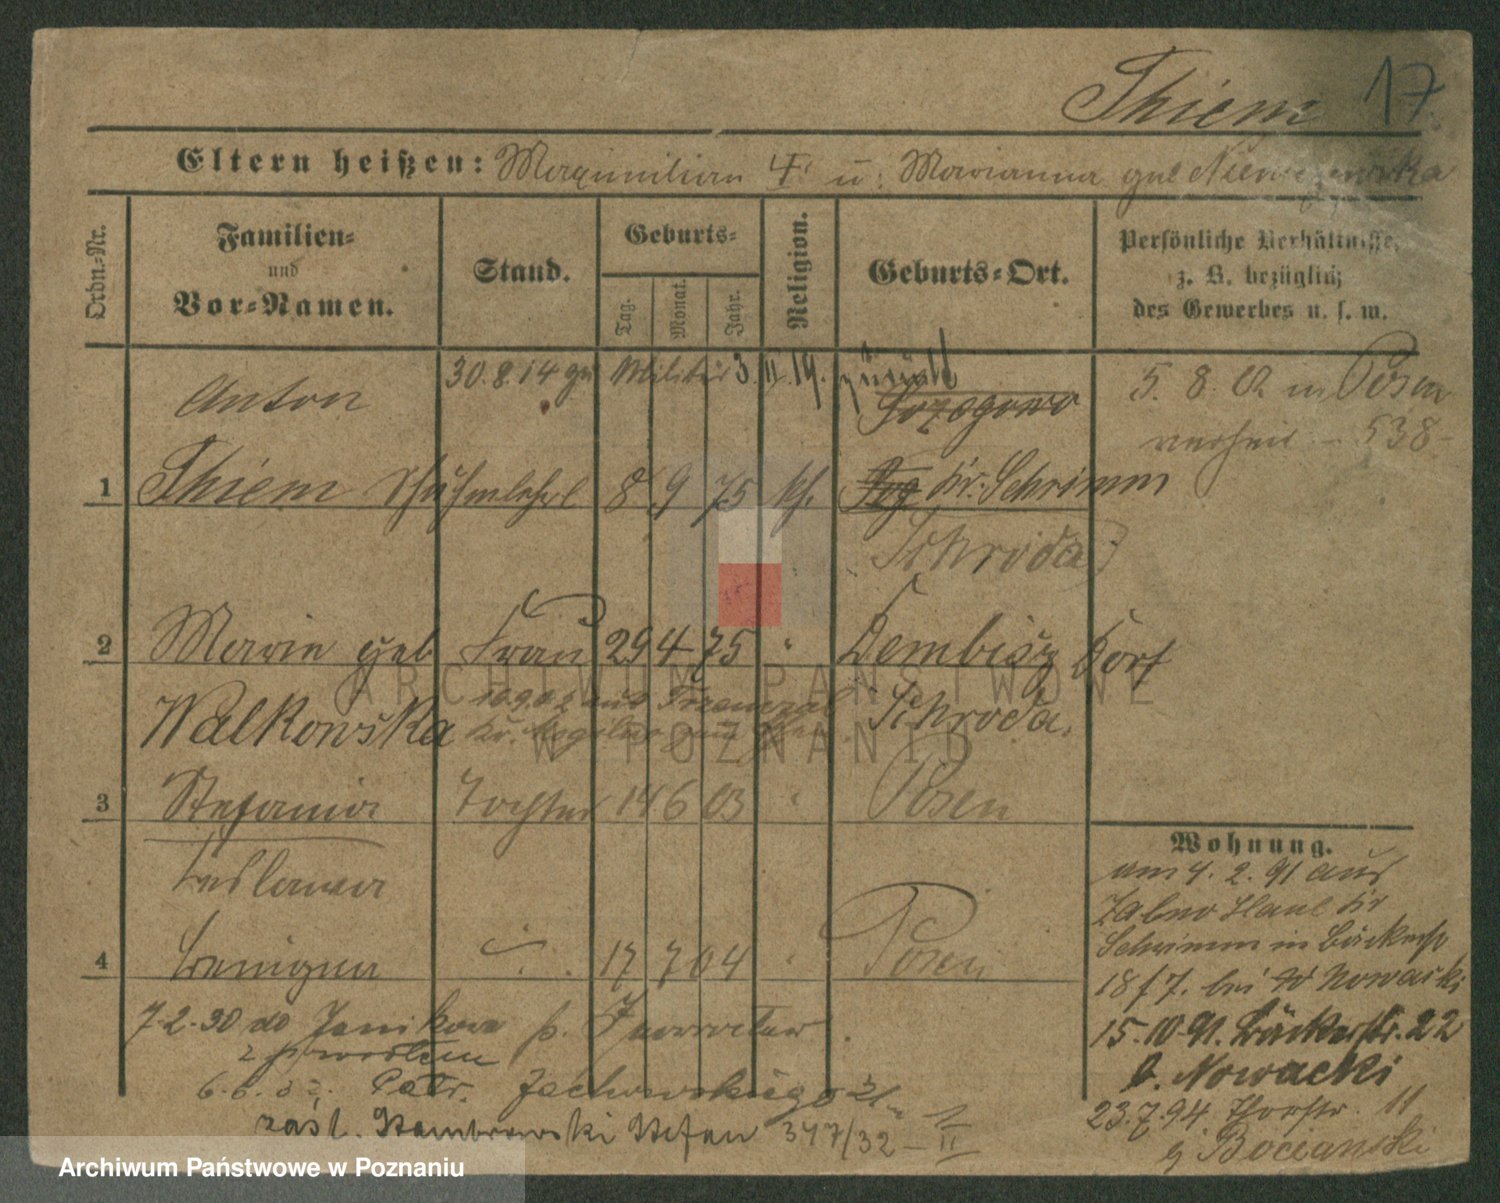 Thiem 17
Eltern heißen: Maximilian T. u: Marianna geb
Ordn.-Nr.
Familien-
und
Vor-Namen.
Stand.
Geburts-
Tag.
Monat.
Jahr.
Religion.
Geburts-Ort.
Persönliche Verhältnisse,
z. B. bezüglich
des Gewerbes u. s. w.
30.8.14 zu Militär 3. II. 19. zurück
Anton
5. 8. 02 in Posen
verheir. - 538-
1 Thiem 8 9 75 kth. Kr. Schrimm
Schroda
2 Marie geb Frau 29 4 75 " Dembicz Dorf
Walkowska 16.9.02 aus
Schroda.
3 Stefania Tochter 14 6 03 " Posen
4 17 7 04 " Posen
7.2.30 do Janikowa p.
z powrotem
6.6.32. Patr. Jackowskiego 21
zaśl. Stefan 347/32 - II
Wohnung.
am 4. 2. 91 aus
Zabno Haul. Kr
Schrimm in Bäckerstr
18/7. bei Nowacki
15.10.91. Bäckerstr. 22
b. Nowacki
23.7.94. Thorstr. 11
b. Bocianski
ARCHIWUM PAŃSTWOWE
W POZNANIU
Archiwum Państwowe w Poznaniu